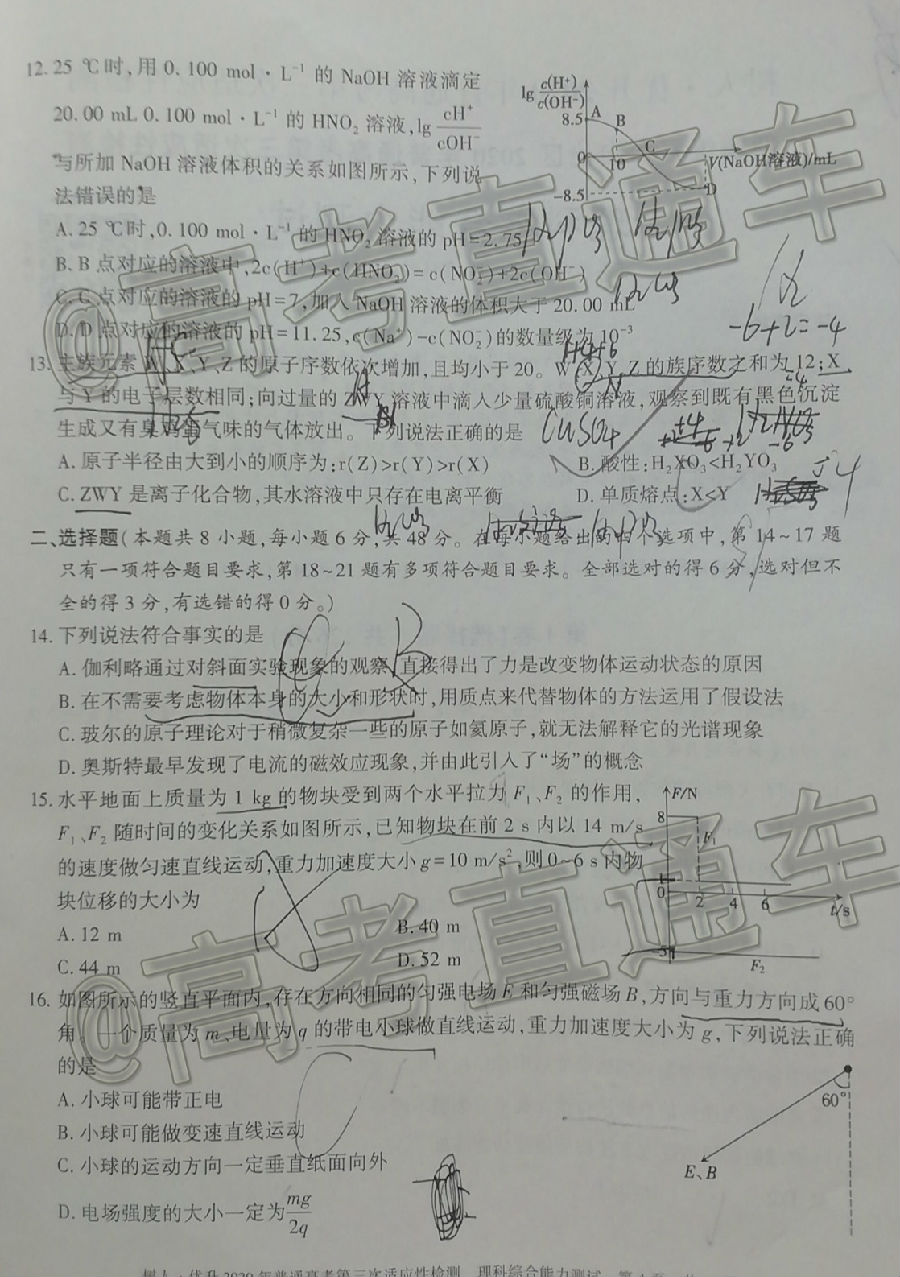 12. 25 ℃时,用 0.100 mol·L⁻¹ 的 NaOH 溶液滴定
20.00 mL 0.100 mol·L⁻¹ 的 HNO₂ 溶液,lg cH⁺/cOH⁻
与所加 NaOH 溶液体积的关系如图所示,下列说
法错误的是
lg c(H⁺)/c(OH⁻)
8.5
A
B
C
0
10
V(NaOH溶液)/mL
-8.5
D
A. 25 ℃时,0.100 mol·L⁻¹ 的 HNO₂ 溶液的 pH=2.75
B. B 点对应的溶液中,2c(H⁺)+c(HNO₂)=c(NO₂⁻)+2c(OH⁻)
C. C 点对应的溶液的 pH=7,加入 NaOH 溶液的体积大于 20.00 mL
D. D 点对应的溶液的 pH=11.25,c(Na⁺)-c(NO₂⁻)的数量级为 10⁻³
-6+2=-4
13. 主族元素 W、X、Y、Z 的原子序数依次增加,且均小于 20。W、X、Y、Z 的族序数之和为 12;X
与 Y 的电子层数相同;向过量的 ZWY 溶液中滴入少量硫酸铜溶液,观察到既有黑色沉淀
生成又有臭鸡蛋气味的气体放出。下列说法正确的是
CuSO₄
A. 原子半径由大到小的顺序为:r(Z)>r(Y)>r(X)
B. 酸性:H₂XO₃<H₂YO₃
C. ZWY 是离子化合物,其水溶液中只存在电离平衡
D. 单质熔点:X<Y
二、选择题(本题共 8 小题,每小题 6 分,共 48 分。在每小题给出的四个选项中,第 14~17 题
只有一项符合题目要求,第 18~21 题有多项符合题目要求。全部选对的得 6 分,选对但不
全的得 3 分,有选错的得 0 分。)
14. 下列说法符合事实的是
A. 伽利略通过对斜面实验现象的观察,直接得出了力是改变物体运动状态的原因
B. 在不需要考虑物体本身的大小和形状时,用质点来代替物体的方法运用了假设法
C. 玻尔的原子理论对于稍微复杂一些的原子如氦原子,就无法解释它的光谱现象
D. 奥斯特最早发现了电流的磁效应现象,并由此引入了“场”的概念
15. 水平地面上质量为 1 kg 的物块受到两个水平拉为 F₁、F₂ 的作用,
F₁、F₂ 随时间的变化关系如图所示,已知物块在前 2 s 内以 14 m/s
的速度做匀速直线运动,重力加速度大小 g=10 m/s²,则 0~6 s 内物
块位移的大小为
A. 12 m
B. 40 m
C. 44 m
D. 52 m
F/N
8
F₁
1
0
2
4
6
t/s
F₂
16. 如图所示的竖直平面内,存在方向相同的匀强电场 E 和匀强磁场 B,方向与重力方向成 60°
角。一个质量为 m、电量为 q 的带电小球做直线运动,重力加速度大小为 g,下列说法正确
的是
A. 小球可能带正电
B. 小球可能做变速直线运动
C. 小球的运动方向一定垂直纸面向外
D. 电场强度的大小一定为 mg/2q
60°
E、B
@高考直通车
@高考直通车